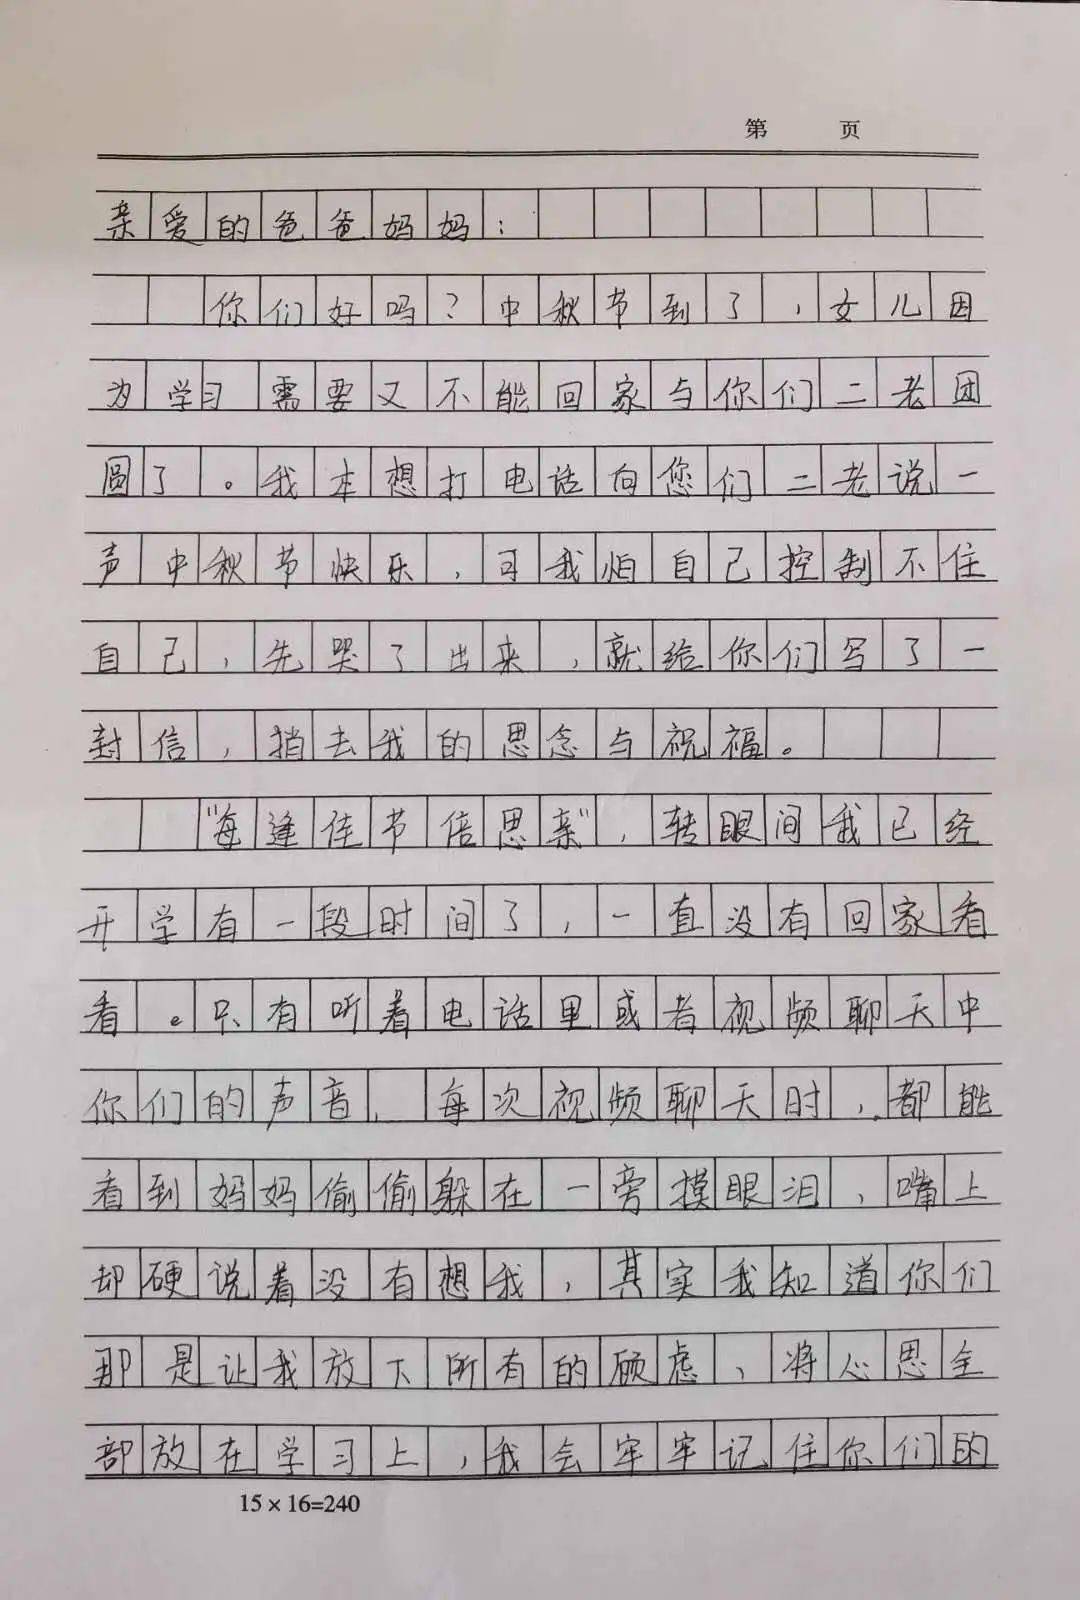 第 页
亲爱的爸爸妈妈：
你们好吗？中秋节到了，女儿因
为学习需要又不能回家与你们二老团
圆了。我本想打电话向您们二老说一
声中秋节快乐，可我怕自己控制不住
自己，先哭了出来，就给你们写了一
封信，捎去我的思念与祝福。
“每逢佳节倍思亲”，转眼间我已经
开学有一段时间了，一直没有回家看
看。只有听着电话里或者视频聊天中
你们的声音，每次视频聊天时，都能
看到妈妈偷偷躲在一旁摸眼泪，嘴上
却硬说着没有想我，其实我知道你们
那是让我放下所有的顾虑，将心思全
部放在学习上，我会牢牢记住你们的
15×16=240